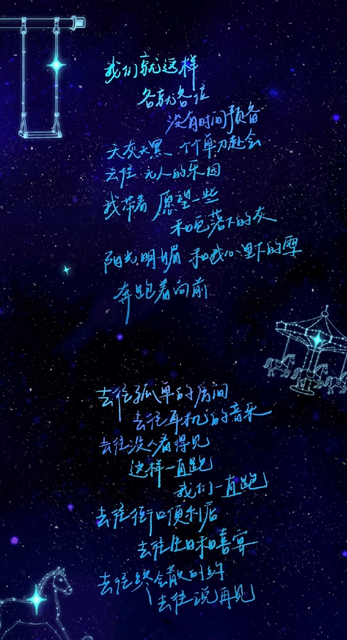 我们就这样
各就各位
没有时间预备
天灰天黑 个个单刀赴会
去往 无人的乐园
我带着 愿望一些
和包落下的灰
阳光明媚 和我心里下的雪
奔跑着向前
去往孤单的房间
去往耳机的音乐
去往没人看得见
这样一直跑
我们一直跑
去往街口便利店
去往生日和喜宴
去往终会散的约
去往说再见